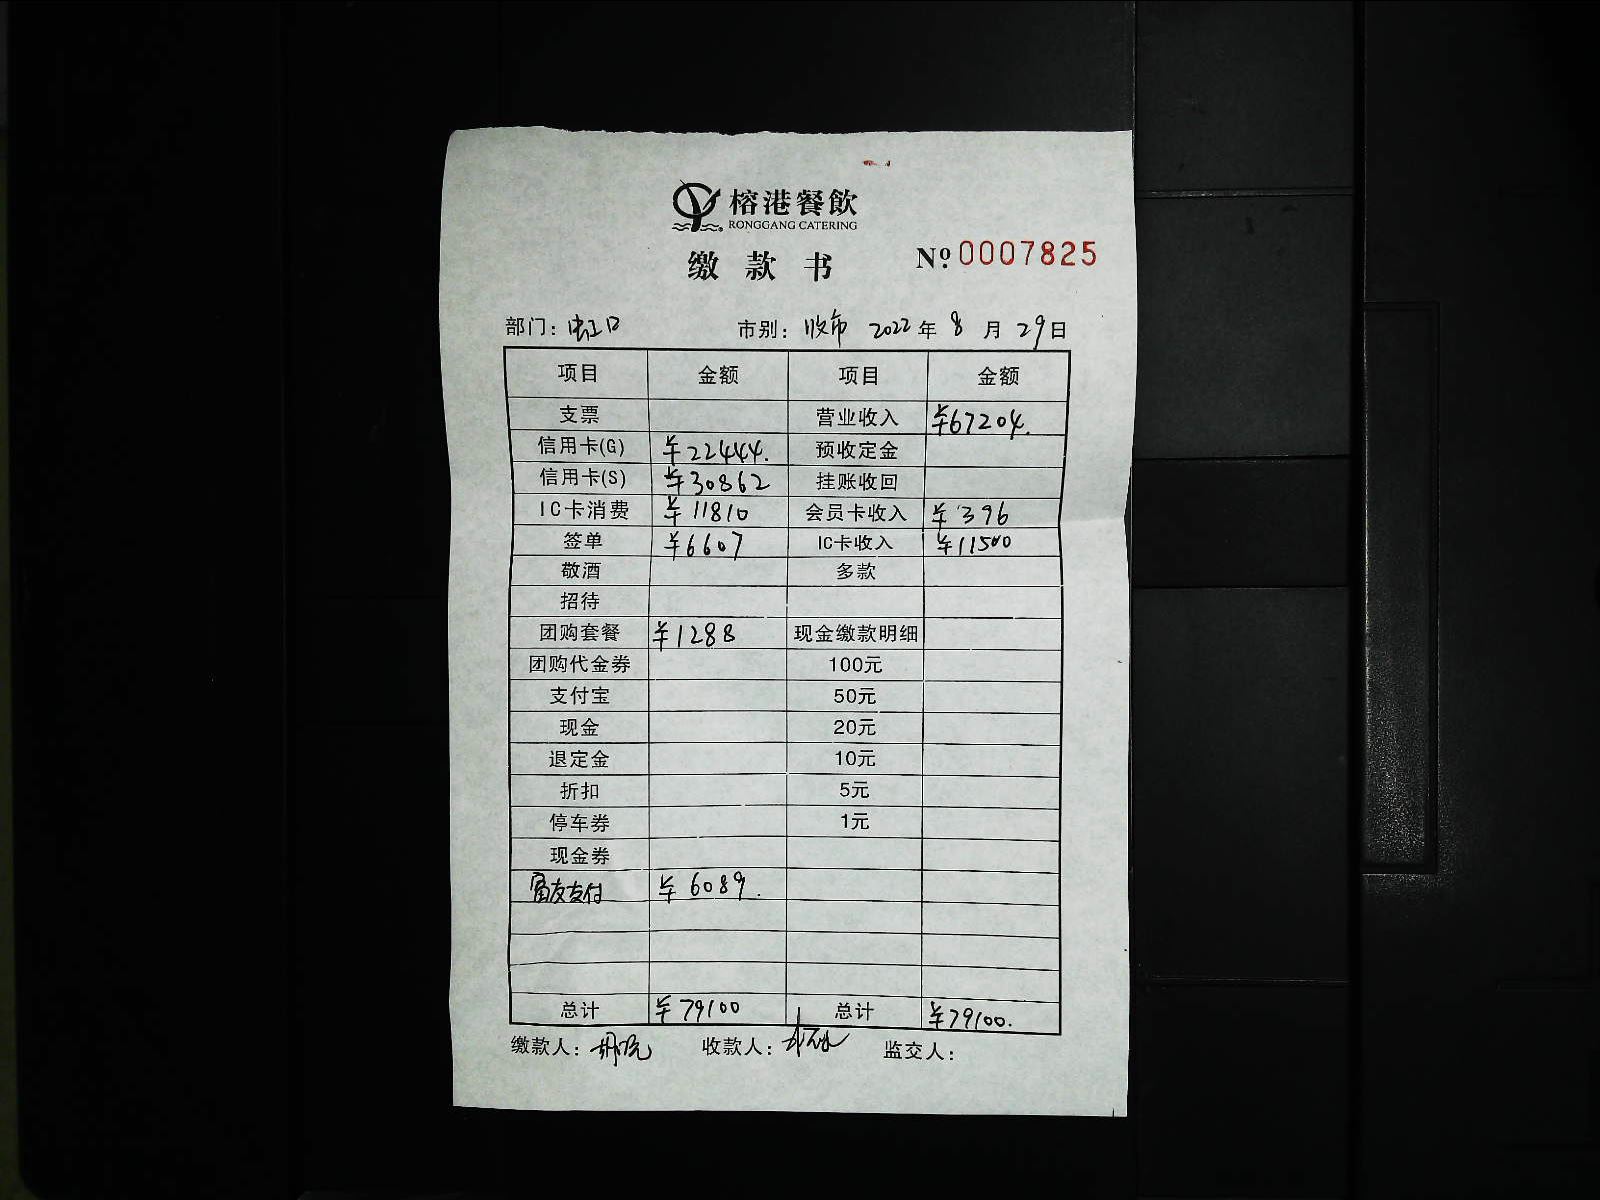 榕港餐飲
RONGGANG CATERING
缴款书 Nº 0007825
部门: 虹口 市别: 收市 2022年8月29日
项目 金额 项目 金额
支票 营业收入 ¥67204.
信用卡(G) ¥22444. 预收定金
信用卡(S) ¥30862 挂账收回
IC卡消费 ¥11810 会员卡收入 ¥396
签单 ¥6607 IC卡收入 ¥11500
敬酒 多款
招待
团购套餐 ¥1288 现金缴款明细
团购代金券 100元
支付宝 50元
现金 20元
退定金 10元
折扣 5元
停车券 1元
现金券
富友支付 ¥6089.
总计 ¥79100 总计 ¥79100.
缴款人: 收款人: 监交人: